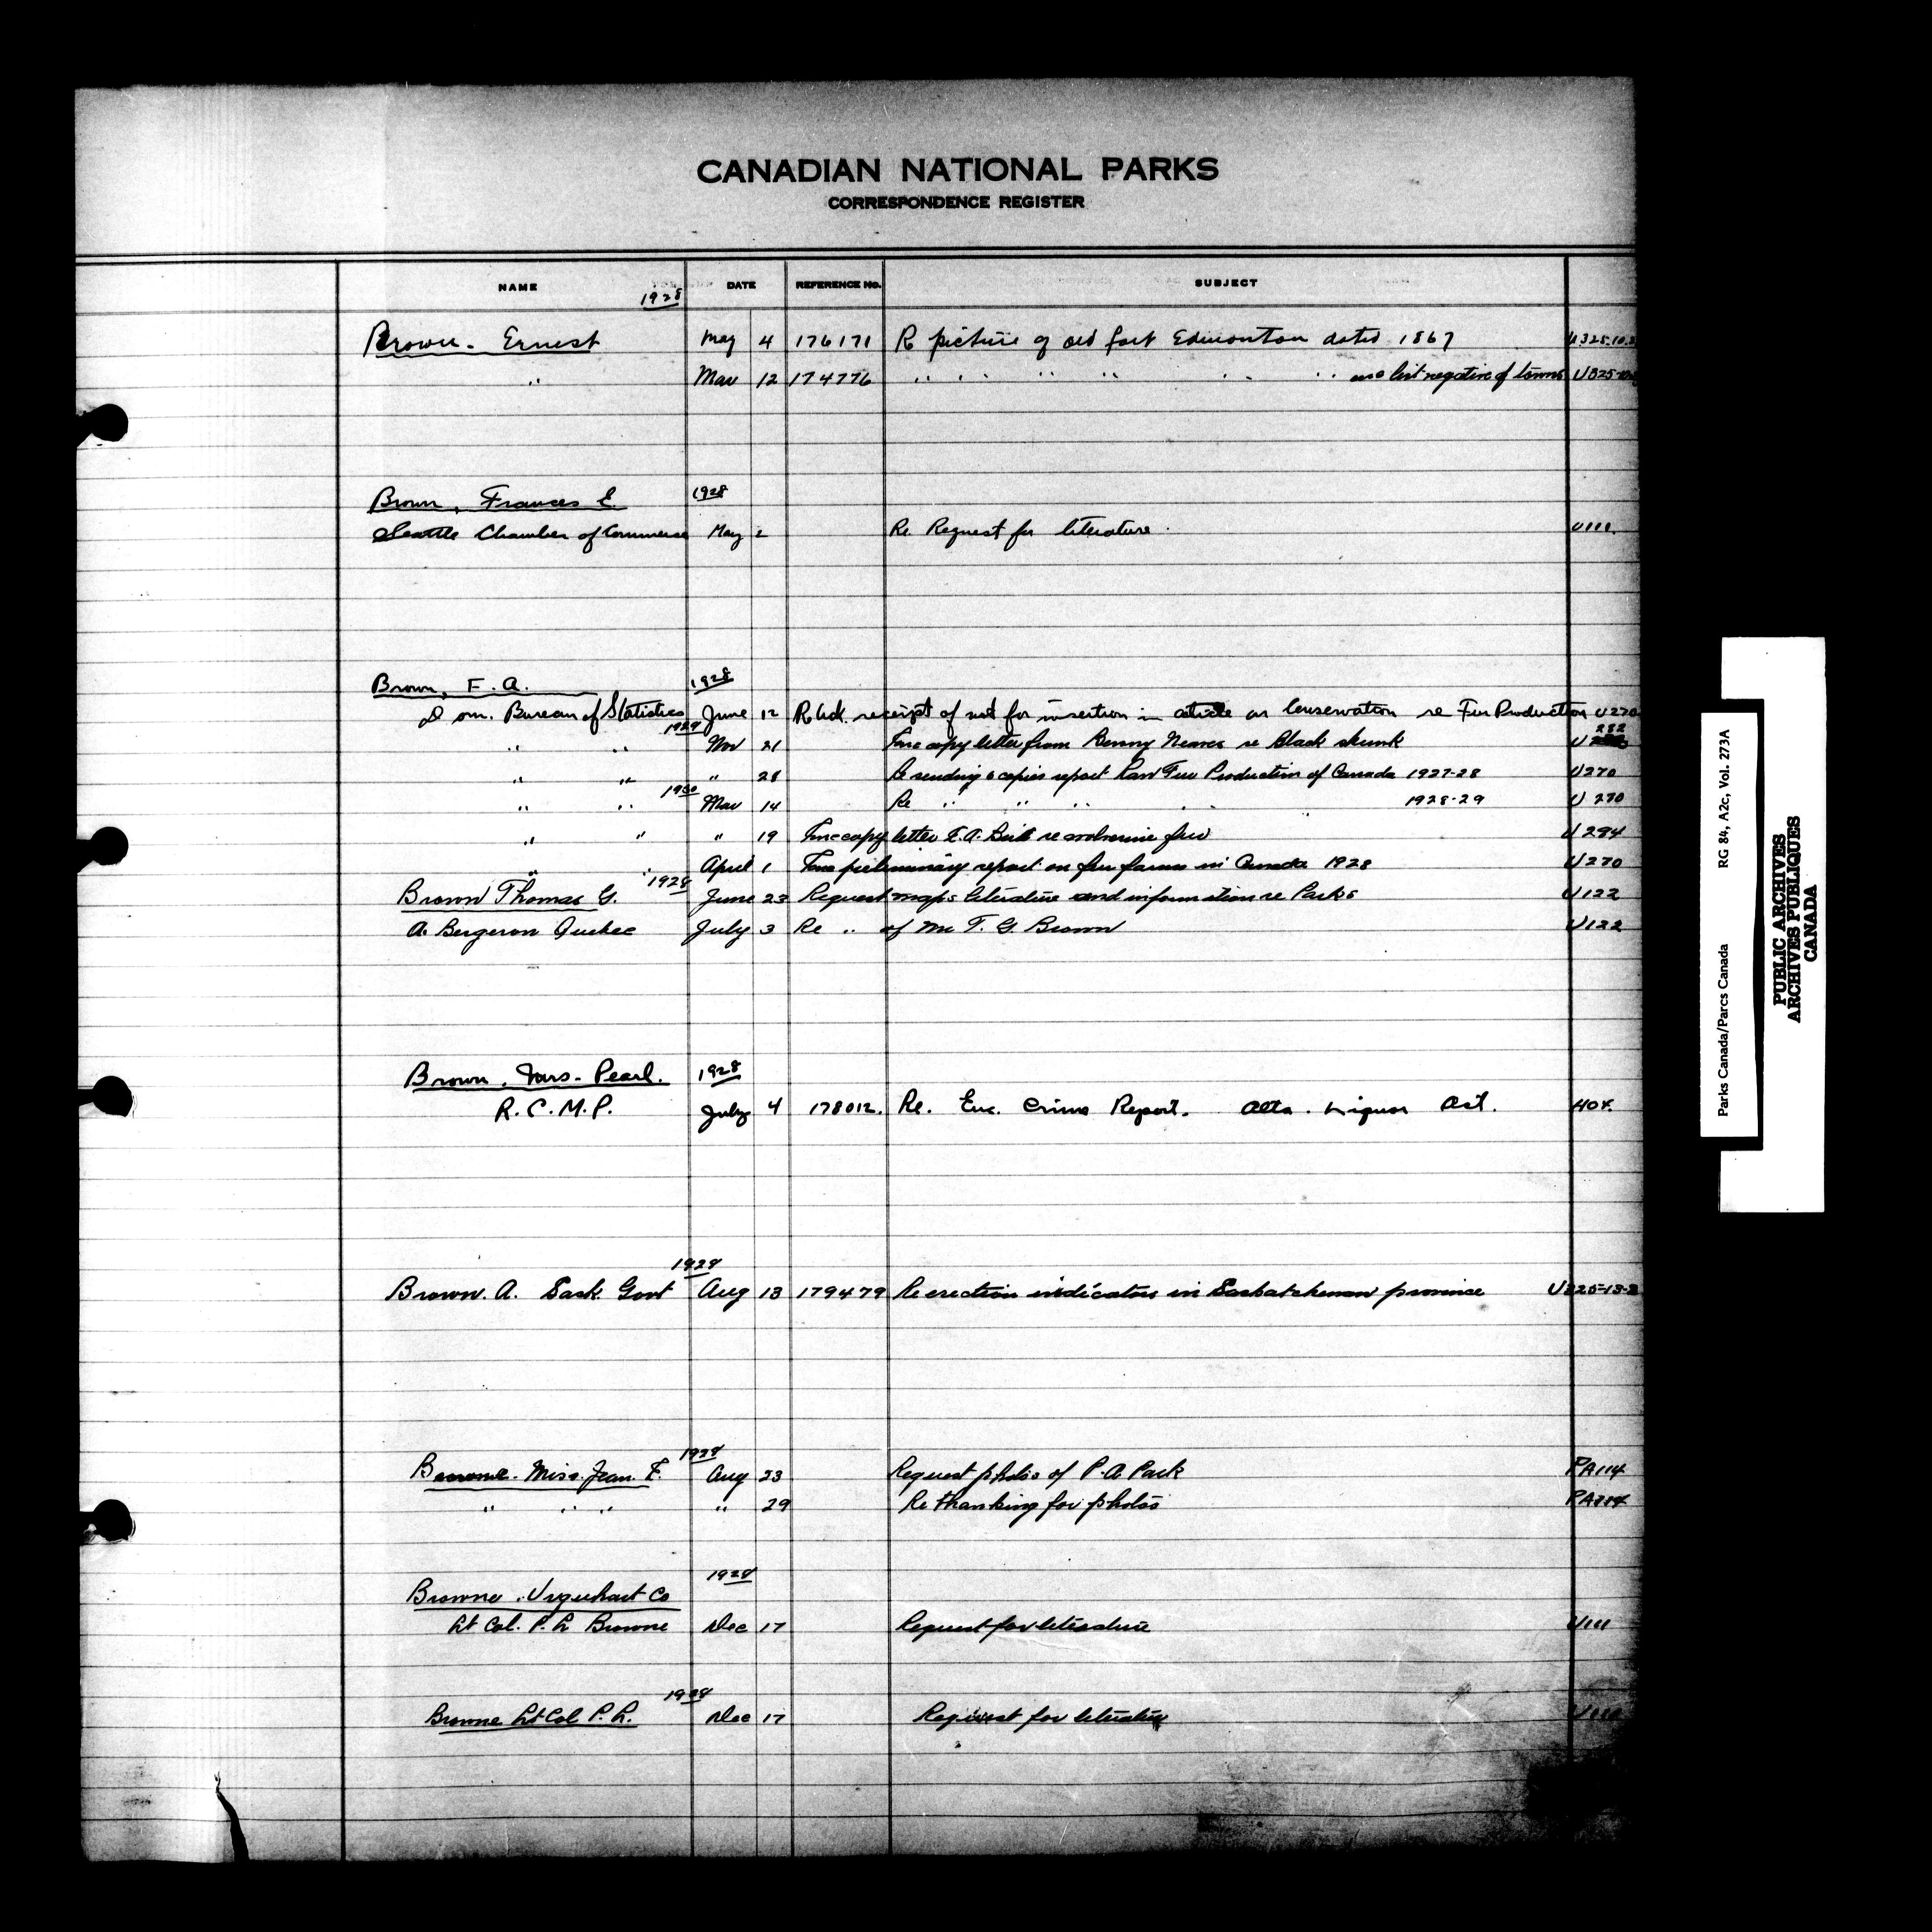 CANADIAN NATIONAL PARKS
CORRESPONDENCE REGISTER
NAME DATE REFERENCE No. SUBJECT
1928
Brown - Ernest May 4 176171 Re picture of old fort Edmonton dated 1867 U325-10-3
" Mar 12 174776 " " " " " " list negative of towns U325
Brown, Frances E. 1928
Seattle Chamber of Commerce May 2 Re Request for literature. U111.
Brown, F. A. 1928
Dom. Bureau of Statistics June 12 Re Ack. receipt of not for insertion in article on Conservation re Fur Production U270
1929
" " Nov 21 copy letter from Benny re Black skunk U 282
" " " 28 Re sending 6 copies report Raw Fur Production of Canada 1927-28 U270
1930
" " Mar 14 Re " " " " 1928-29 U 270
" " " 19 copy letter E. A. re wolverine fur U 294
" " April 1 preliminary report on fur farms in Canada 1928 U270
1928
Brown Thomas G. June 23 Request maps literature and information re Parks U122
A. Bergeron Quebec July 3 Re " of Mr T. G. Brown U122
Brown, Mrs. Pearl. 1928
R. C. M. P. July 4 178012. Re. Enc. Crime Report. Alta. Liquor Act. H04.
1928
Brown. A. Sask. Govt Aug 13 179479 Re erection indicators in Saskatchewan province U325-13-3
1928
Browne. Miss. Jean. E. Aug 23 Request photos of P. A. Park PA114
" " " " 29 Re thanking for photos PA114
1928
Browne. Urquhart Co
Lt Col. P. L Browne Dec 17 Request for literature U111
1928
Browne Lt Col P. L. Dec 17 Request for literature U111
Parks Canada/Parcs Canada RG 84, A2c, Vol. 273A
PUBLIC ARCHIVES
ARCHIVES PUBLIQUES
CANADA